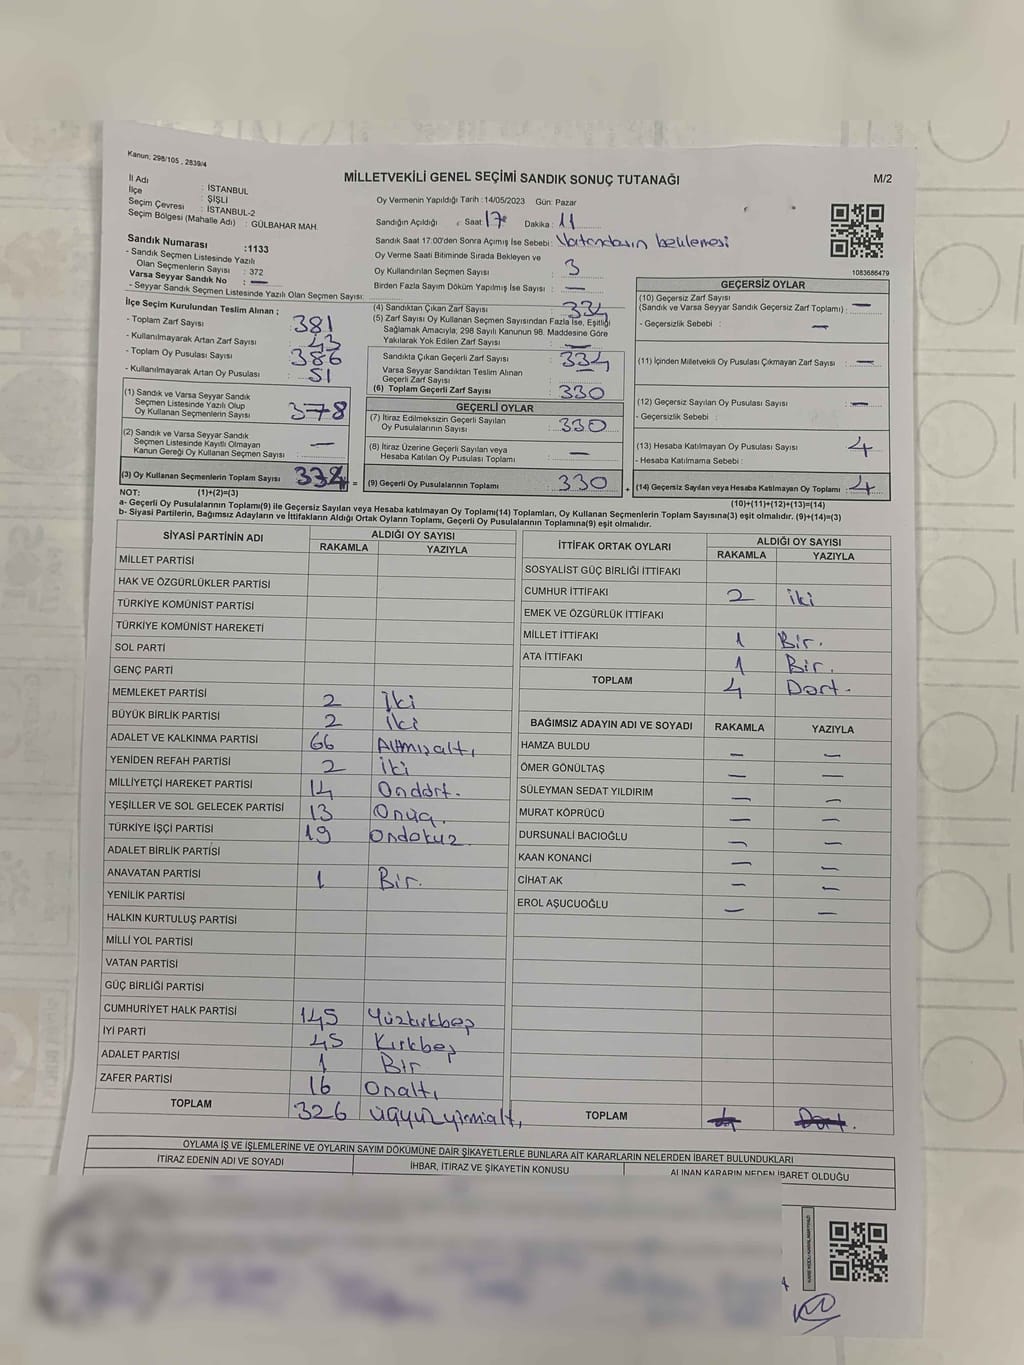 Kanun; 298/105 , 2839/4
MİLLETVEKİLİ GENEL SEÇİMİ SANDIK SONUÇ TUTANAĞI
M/2
İl Adı : İSTANBUL
İlçe : ŞİŞLİ
Seçim Çevresi : İSTANBUL-2
Seçim Bölgesi (Mahalle Adı) : GÜLBAHAR MAH.
Sandık Numarası :1133
- Sandık Seçmen Listesinde Yazılı
Olan Seçmenlerin Sayısı : 372
Varsa Seyyar Sandık No : —
- Seyyar Sandık Seçmen Listesinde Yazılı Olan Seçmen Sayısı:
İlçe Seçim Kurulundan Teslim Alınan ;
- Toplam Zarf Sayısı : 381
- Kullanılmayarak Artan Zarf Sayısı : 43
- Toplam Oy Pusulası Sayısı : 386
- Kullanılmayarak Artan Oy Pusulası : 51
(1) Sandık ve Varsa Seyyar Sandık
Seçmen Listesinde Yazılı Olup
Oy Kullanan Seçmenlerin Sayısı : 378
(2) Sandık ve Varsa Seyyar Sandık
Seçmen Listesinde Kayıtlı Olmayan
Kanun Gereği Oy Kullanan Seçmen Sayısı : —
(3) Oy Kullanan Seçmenlerin Toplam Sayısı 334 =
Oy Vermenin Yapıldığı Tarih :14/05/2023 Gün: Pazar
Sandığın Açıldığı : Saat 17 Dakika : 11
Sandık Saat 17:00'den Sonra Açımış İse Sebebi : Vatandaşın beklemesi
Oy Verme Saati Bitiminde Sırada Bekleyen ve
Oy Kullandırılan Seçmen Sayısı : 3
Birden Fazla Sayım Döküm Yapılmış İse Sayısı : —
(4) Sandıktan Çıkan Zarf Sayısı : 334
(5) Zarf Sayısı Oy Kullanan Seçmen Sayısından Fazla İse, Eşitliği
Sağlamak Amacıyla; 298 Sayılı Kanunun 98. Maddesine Göre
Yakılarak Yok Edilen Zarf Sayısı : —
Sandıkta Çıkan Geçerli Zarf Sayısı : 334
Varsa Seyyar Sandıktan Teslim Alınan
Geçerli Zarf Sayısı : —
(6) Toplam Geçerli Zarf Sayısı : 330
GEÇERLİ OYLAR
(7) İtiraz Edilmeksizin Geçerli Sayılan
Oy Pusulalarının Sayısı : 330
(8) İtiraz Üzerine Geçerli Sayılan veya
Hesaba Katılan Oy Pusulası Toplamı : —
(9) Geçerli Oy Pusulalarının Toplamı : 330 +
1083686479
GEÇERSİZ OYLAR
(10) Geçersiz Zarf Sayısı
(Sandık ve Varsa Seyyar Sandık Geçersiz Zarf Toplamı) : —
- Geçersizlik Sebebi : —
(11) İçinden Milletvekili Oy Pusulası Çıkmayan Zarf Sayısı : —
(12) Geçersiz Sayılan Oy Pusulası Sayısı : —
- Geçersizlik Sebebi :
(13) Hesaba Katılmayan Oy Pusulası Sayısı 4
- Hesaba Katılmama Sebebi :
(14) Geçersiz Sayılan veya Hesaba Katılmayan Oy Toplamı : 4
NOT: (1)+(2)=(3) (10)+(11)+(12)+(13)=(14)
a- Geçerli Oy Pusulalarının Toplamı(9) ile Geçersiz Sayılan veya Hesaba katılmayan Oy Toplamı(14) Toplamları, Oy Kullanan Seçmenlerin Toplam Sayısına(3) eşit olmalıdır. (9)+(14)=(3)
b- Siyasi Partilerin, Bağımsız Adayların ve İttifakların Aldığı Ortak Oyların Toplamı, Geçerli Oy Pusulalarının Toplamına(9) eşit olmalıdır.
SİYASİ PARTİNİN ADI ALDIĞI OY SAYISI
RAKAMLA YAZIYLA
MİLLET PARTİSİ
HAK VE ÖZGÜRLÜKLER PARTİSİ
TÜRKİYE KOMÜNİST PARTİSİ
TÜRKİYE KOMÜNİST HAREKETİ
SOL PARTİ
GENÇ PARTİ
MEMLEKET PARTİSİ 2 İki
BÜYÜK BİRLİK PARTİSİ 2 iki
ADALET VE KALKINMA PARTİSİ 66 Altmışaltı
YENİDEN REFAH PARTİSİ 2 iki
MİLLİYETÇİ HAREKET PARTİSİ 14 Ondört.
YEŞİLLER VE SOL GELECEK PARTİSİ 13 Onüç.
TÜRKİYE İŞÇİ PARTİSİ 19 Ondokuz.
ADALET BİRLİK PARTİSİ
ANAVATAN PARTİSİ 1 Bir.
YENİLİK PARTİSİ
HALKIN KURTULUŞ PARTİSİ
MİLLİ YOL PARTİSİ
VATAN PARTİSİ
GÜÇ BİRLİĞİ PARTİSİ
CUMHURİYET HALK PARTİSİ 145 Yüzkırkbeş
İYİ PARTİ 45 Kırkbeş
ADALET PARTİSİ 1 Bir
ZAFER PARTİSİ 16 Onaltı
TOPLAM 326 üçyüzyirmialtı
İTTİFAK ORTAK OYLARI ALDIĞI OY SAYISI
RAKAMLA YAZIYLA
SOSYALİST GÜÇ BİRLİĞİ İTTİFAKI
CUMHUR İTTİFAKI 2 iki
EMEK VE ÖZGÜRLÜK İTTİFAKI
MİLLET İTTİFAKI 1 Bir.
ATA İTTİFAKI 1 Bir.
TOPLAM 4 Dört.
BAĞIMSIZ ADAYIN ADI VE SOYADI RAKAMLA YAZIYLA
HAMZA BULDU — —
ÖMER GÖNÜLTAŞ — —
SÜLEYMAN SEDAT YILDIRIM — —
MURAT KÖPRÜCÜ — —
DURSUNALİ BACIOĞLU — —
KAAN KONANCİ — —
CİHAT AK — —
EROL AŞUCUOĞLU — —
TOPLAM 4 Dört.
OYLAMA İŞ VE İŞLEMLERİNE VE OYLARIN SAYIM DÖKÜMÜNE DAİR ŞİKAYETLERLE BUNLARA AİT KARARLARIN NELERDEN İBARET BULUNDUKLARI
İTİRAZ EDENİN ADI VE SOYADI İHBAR, İTİRAZ VE ŞİKAYETİN KONUSU ALINAN KARARIN NEDEN İBARET OLDUĞU